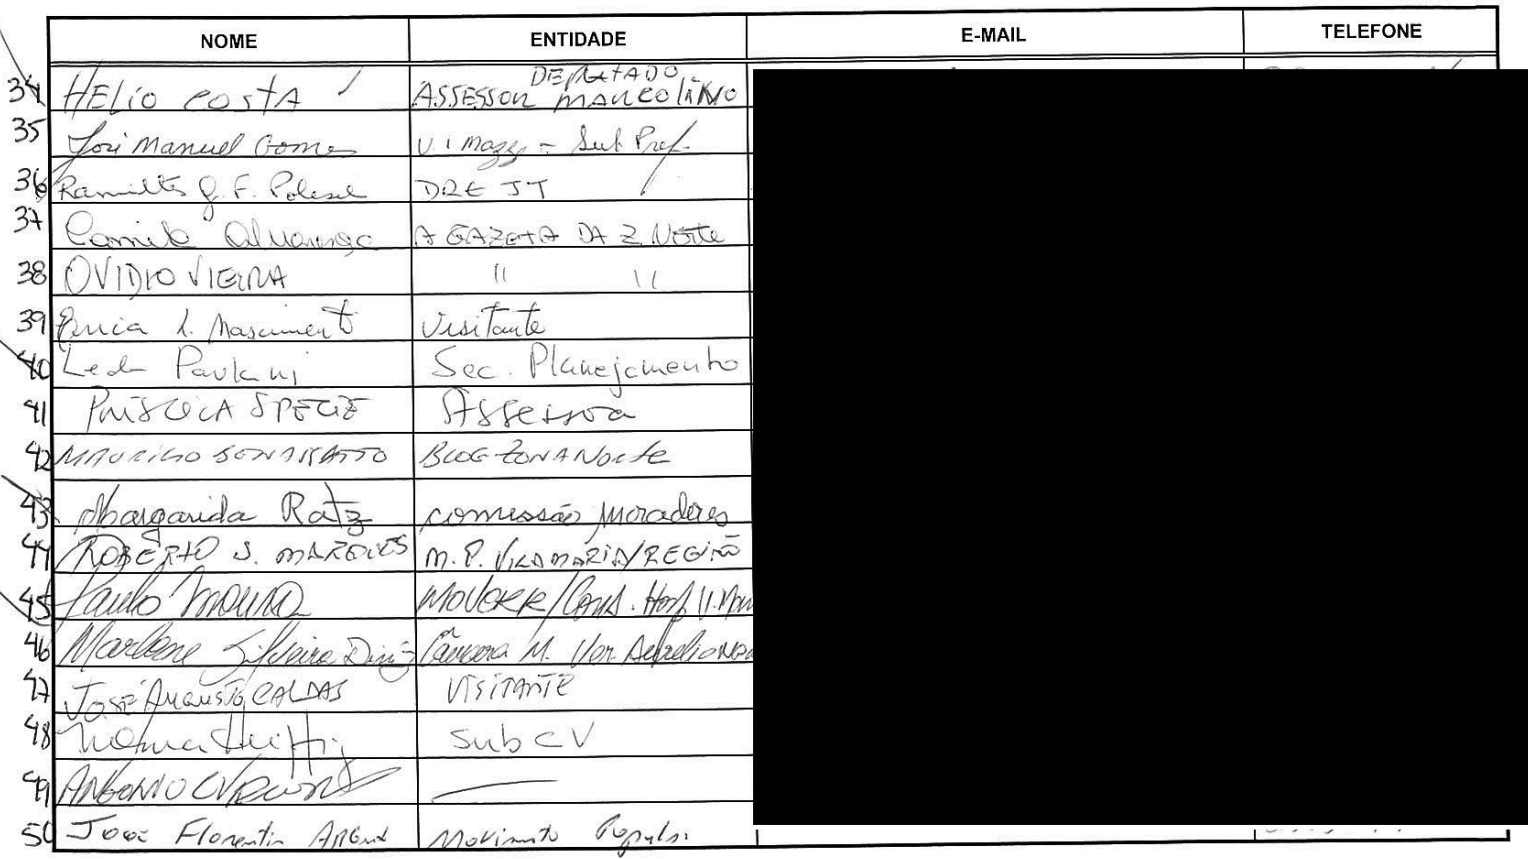 NOME ENTIDADE E-MAIL TELEFONE
DEPUTADO
34 HELIO COSTA ASSESSOR MARCOLINO
35 José Manuel Gomes V. Mazzei - Sub Pref.
36 F. DRE JT
37 Camila A GAZETA DA Z NORTE
38 OVIDIO VIEIRA " "
39 Nascimento Visitante
40 Leda Paulani Sec. Planejamento
41 PRISCILA SPECIE Assessora
42 MAURICIO BLOG ZONA NORTE
43 Margarida Ratz comissão moradores
44 ROBERTO S. MARQUES M.P. VILA MARIA/REGIÃO
45 Paulo Moura
46 Marlene Silveira Diniz Câmara M. Ver
47 JOSÉ AUGUSTO CALDAS VISITANTE
48 Sub CV
49 ANTONIO
50 José Florentin Movimento Popular